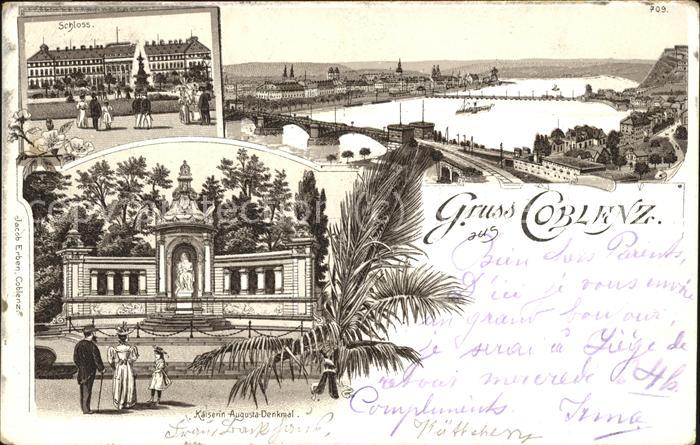 Schloss.
709.
Gruss aus COBLENZ.
Bien chers Parents,
D'ici je vous envoie
un grand bonjour,
je serai à Liège de
retour mercredi à 4 h
Compliments. Irma
Jacob Erben, Coblenz.
Kaiserin-Augusta-Denkmal.